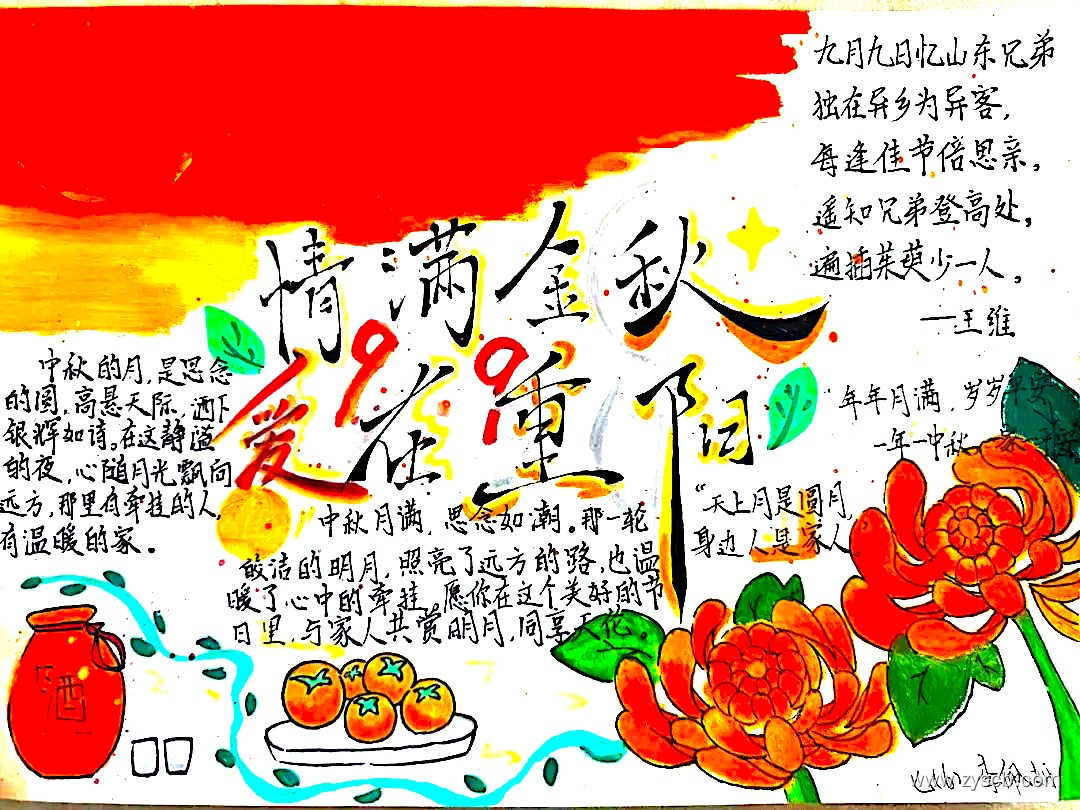 九月九日忆山东兄弟
独在异乡为异客，
每逢佳节倍思亲。
遥知兄弟登高处，
遍插茱萸少一人。
—王维
情满金秋
99
爱在重阳
中秋的月，是思念
的圆，高悬天际，洒下
银辉如诗。在这静谧
的夜，心随月光飘向
远方，那里有牵挂的人，
有温暖的家。
"年年月满，岁岁平安
一年一中秋，
"天上月是圆月，
身边人是家人
中秋月满，思念如潮。那一轮
皎洁的明月，照亮了远方的路，也温
暖了心中的牵挂。愿你在这个美好的节
日里，与家人共赏明月，同享天伦。
「酒」